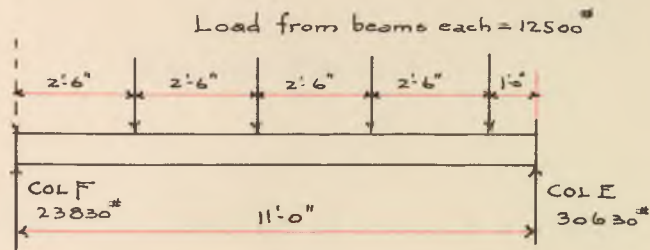 Load from beams each = 12500#
2'-6" 2'-6" 2'-6" 2'-6" 1'-0"
COL F
23830#
11'-0"
COL E
30630#